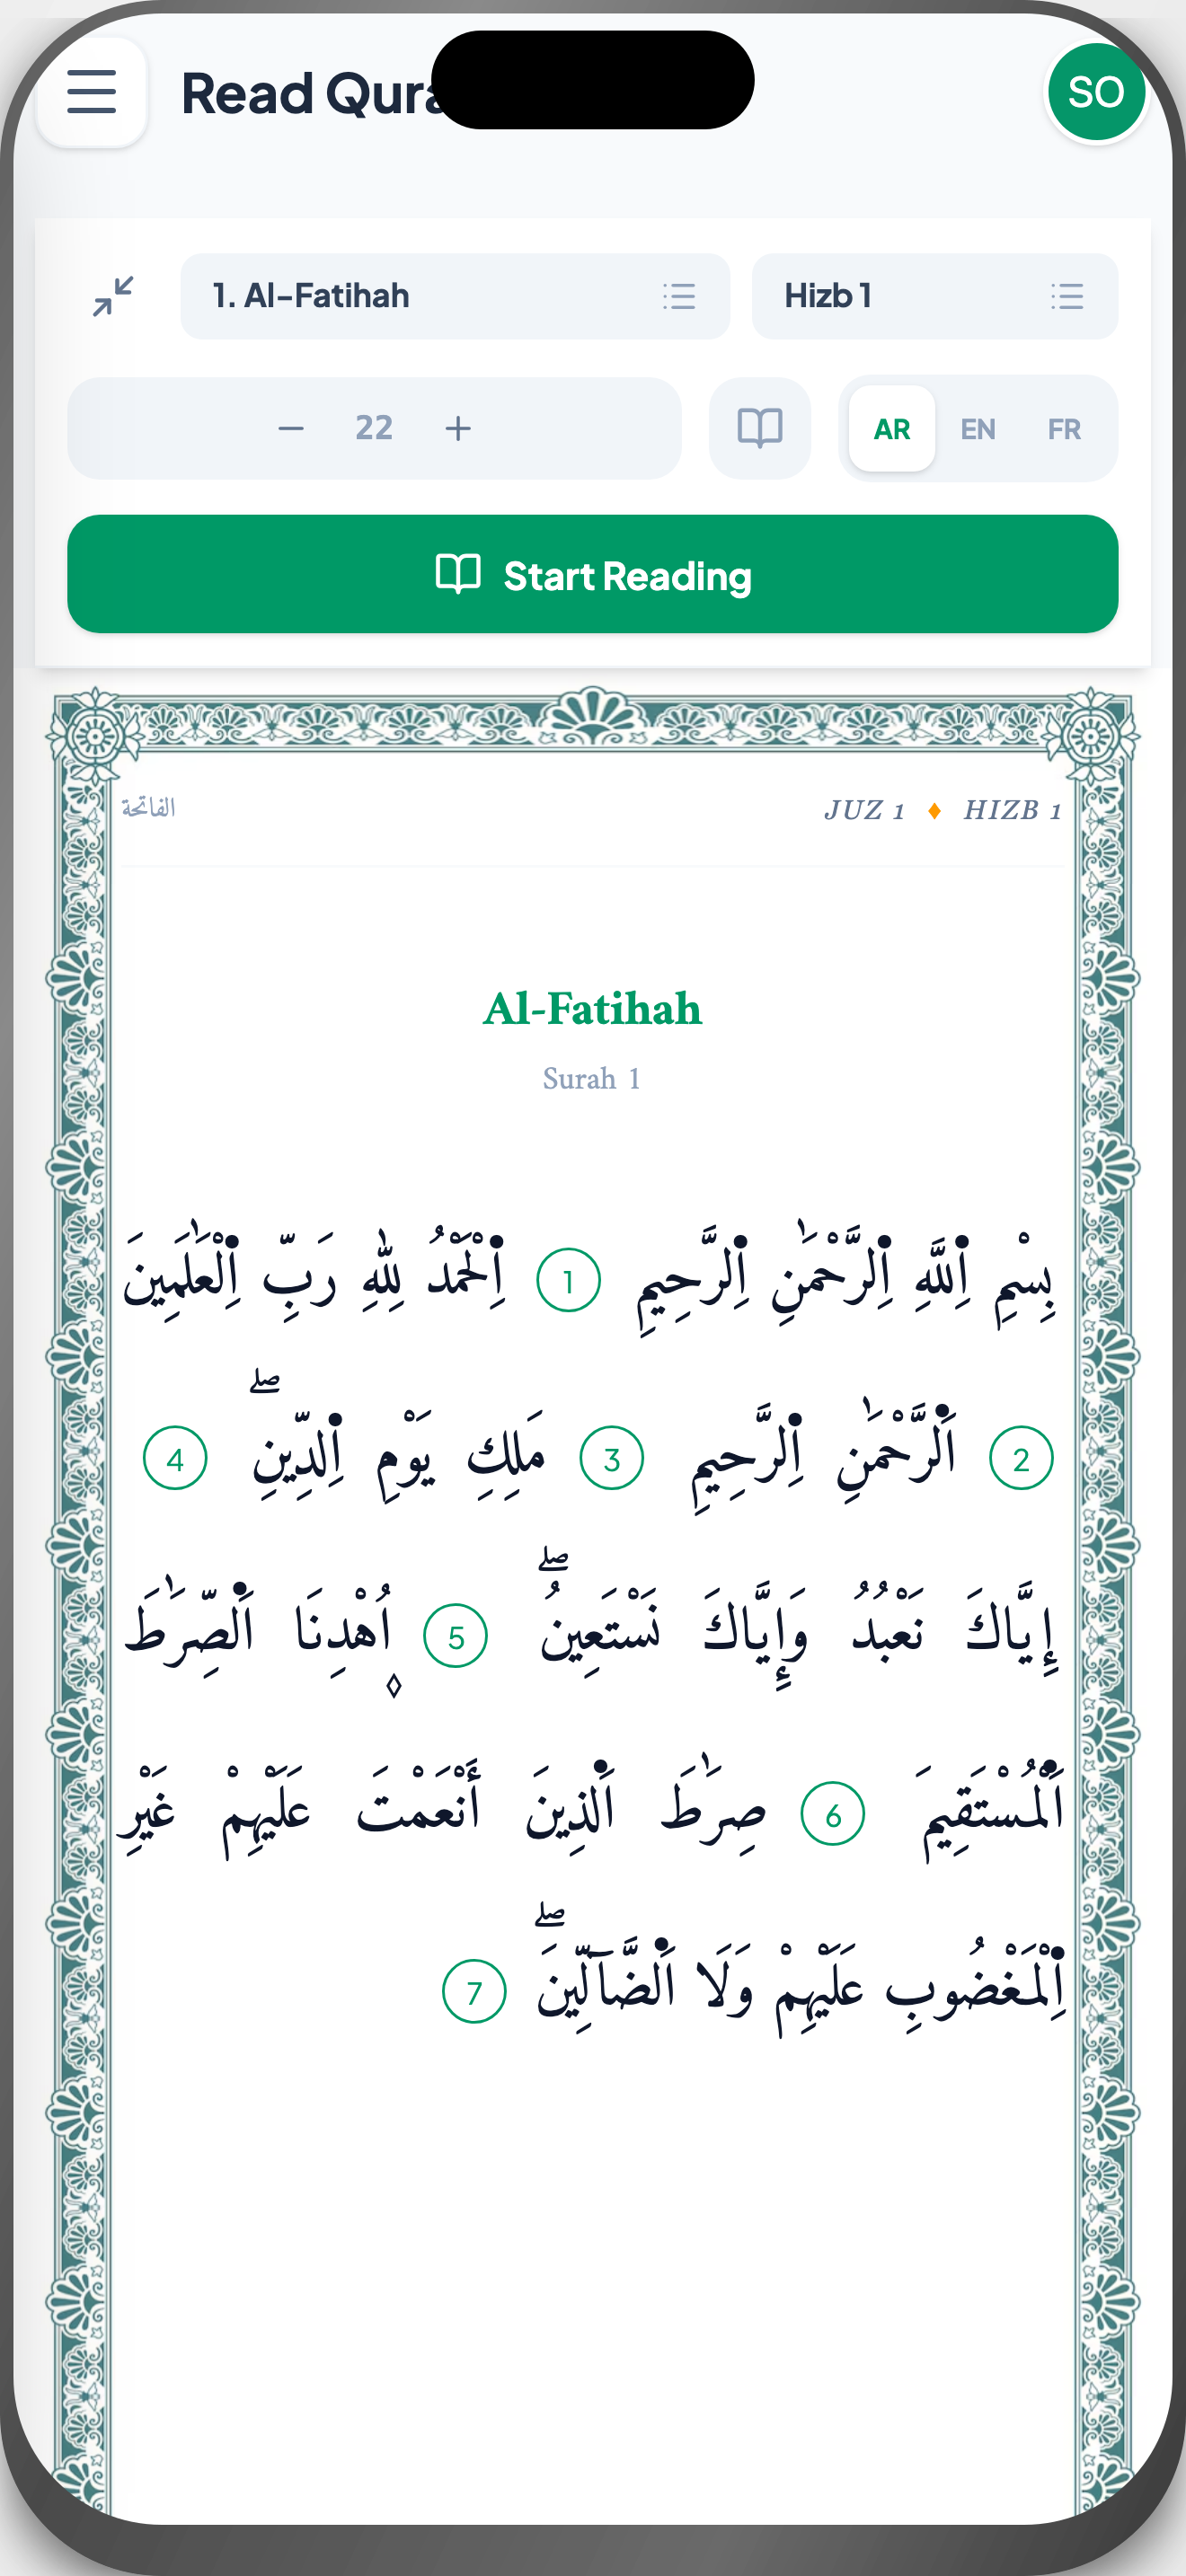 Read Qura
SO
1. Al-Fatihah
Hizb 1
22
AR EN FR
Start Reading
الفاتحة
JUZ 1 ♦ HIZB 1
Al-Fatihah
Surah 1
بِسْمِ اِ۬للَّهِ اِ۬لرَّحْمَٰنِ اِ۬لرَّحِيمِ 1 اِ۬لْحَمْدُ لِلهِ رَبِّ اِ۬لْعَٰلَمِينَ
2 اَ۬لرَّحْمَٰنِ اِ۬لرَّحِيمِ 3 مَلِكِ يَوْمِ اِ۬لدِّينِۖ 4
إِيَّاكَ نَعْبُدُ وَإِيَّاكَ نَسْتَعِينُۖ 5 اُ۪هْدِنَا اَ۬لصِّرَٰطَ
اَ۬لْمُسْتَقِيمَ 6 صِرَٰطَ اَ۬لذِينَ أَنْعَمْتَ عَلَيْهِمْ غَيْرِ
اِ۬لْمَغْضُوبِ عَلَيْهِمْ وَلَا اَ۬لضَّآلِّينَۖ 7